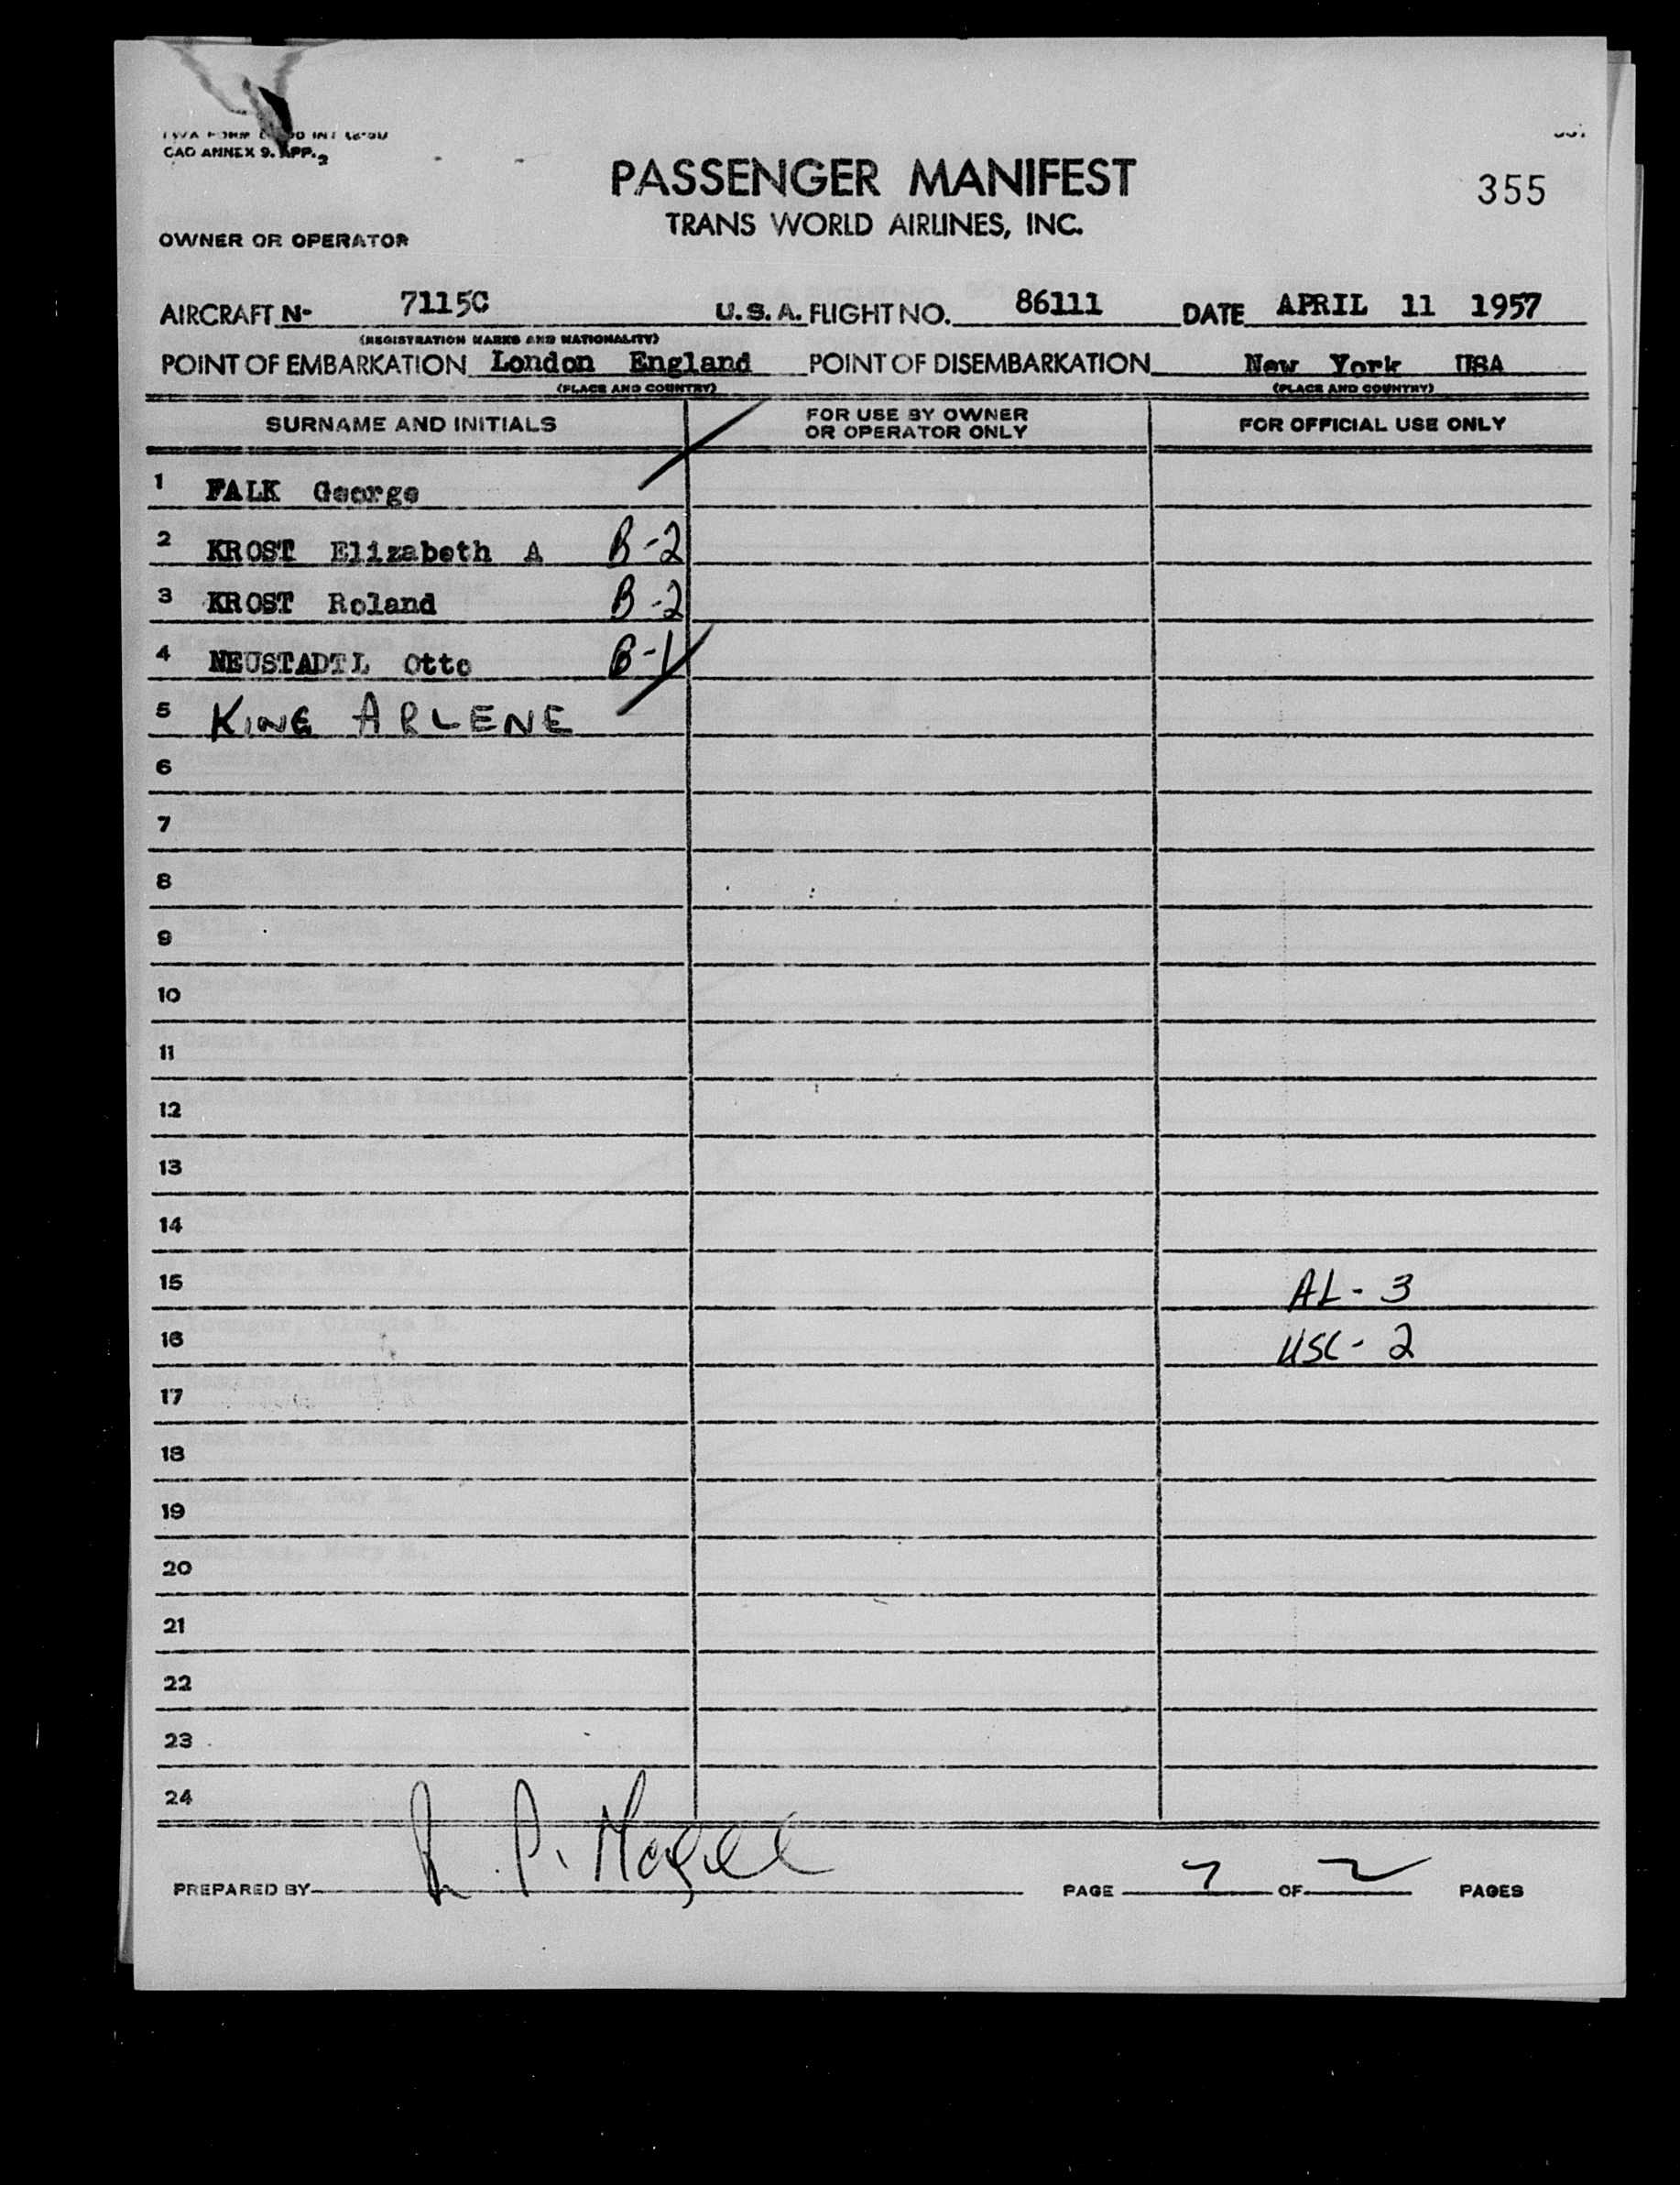 CAO ANNEX 9. APP. 2
PASSENGER MANIFEST
355
TRANS WORLD AIRLINES, INC.
OWNER OR OPERATOR
AIRCRAFT N- 7115C U.S.A. FLIGHT NO. 86111 DATE APRIL 11 1957
(REGISTRATION MARKS AND NATIONALITY)
POINT OF EMBARKATION London England POINT OF DISEMBARKATION New York USA
(PLACE AND COUNTRY) (PLACE AND COUNTRY)
SURNAME AND INITIALS FOR USE BY OWNER OR OPERATOR ONLY FOR OFFICIAL USE ONLY
1 FALK George
2 KROST Elizabeth A B-2
3 KROST Roland B-2
4 NEUSTADTL Otto B-1
5 KING ARLENE
6
7
8
9
10
11
12
13
14
15 AL - 3
16 USC - 2
17
18
19
20
21
22
23
24
PREPARED BY PAGE OF 2 PAGES